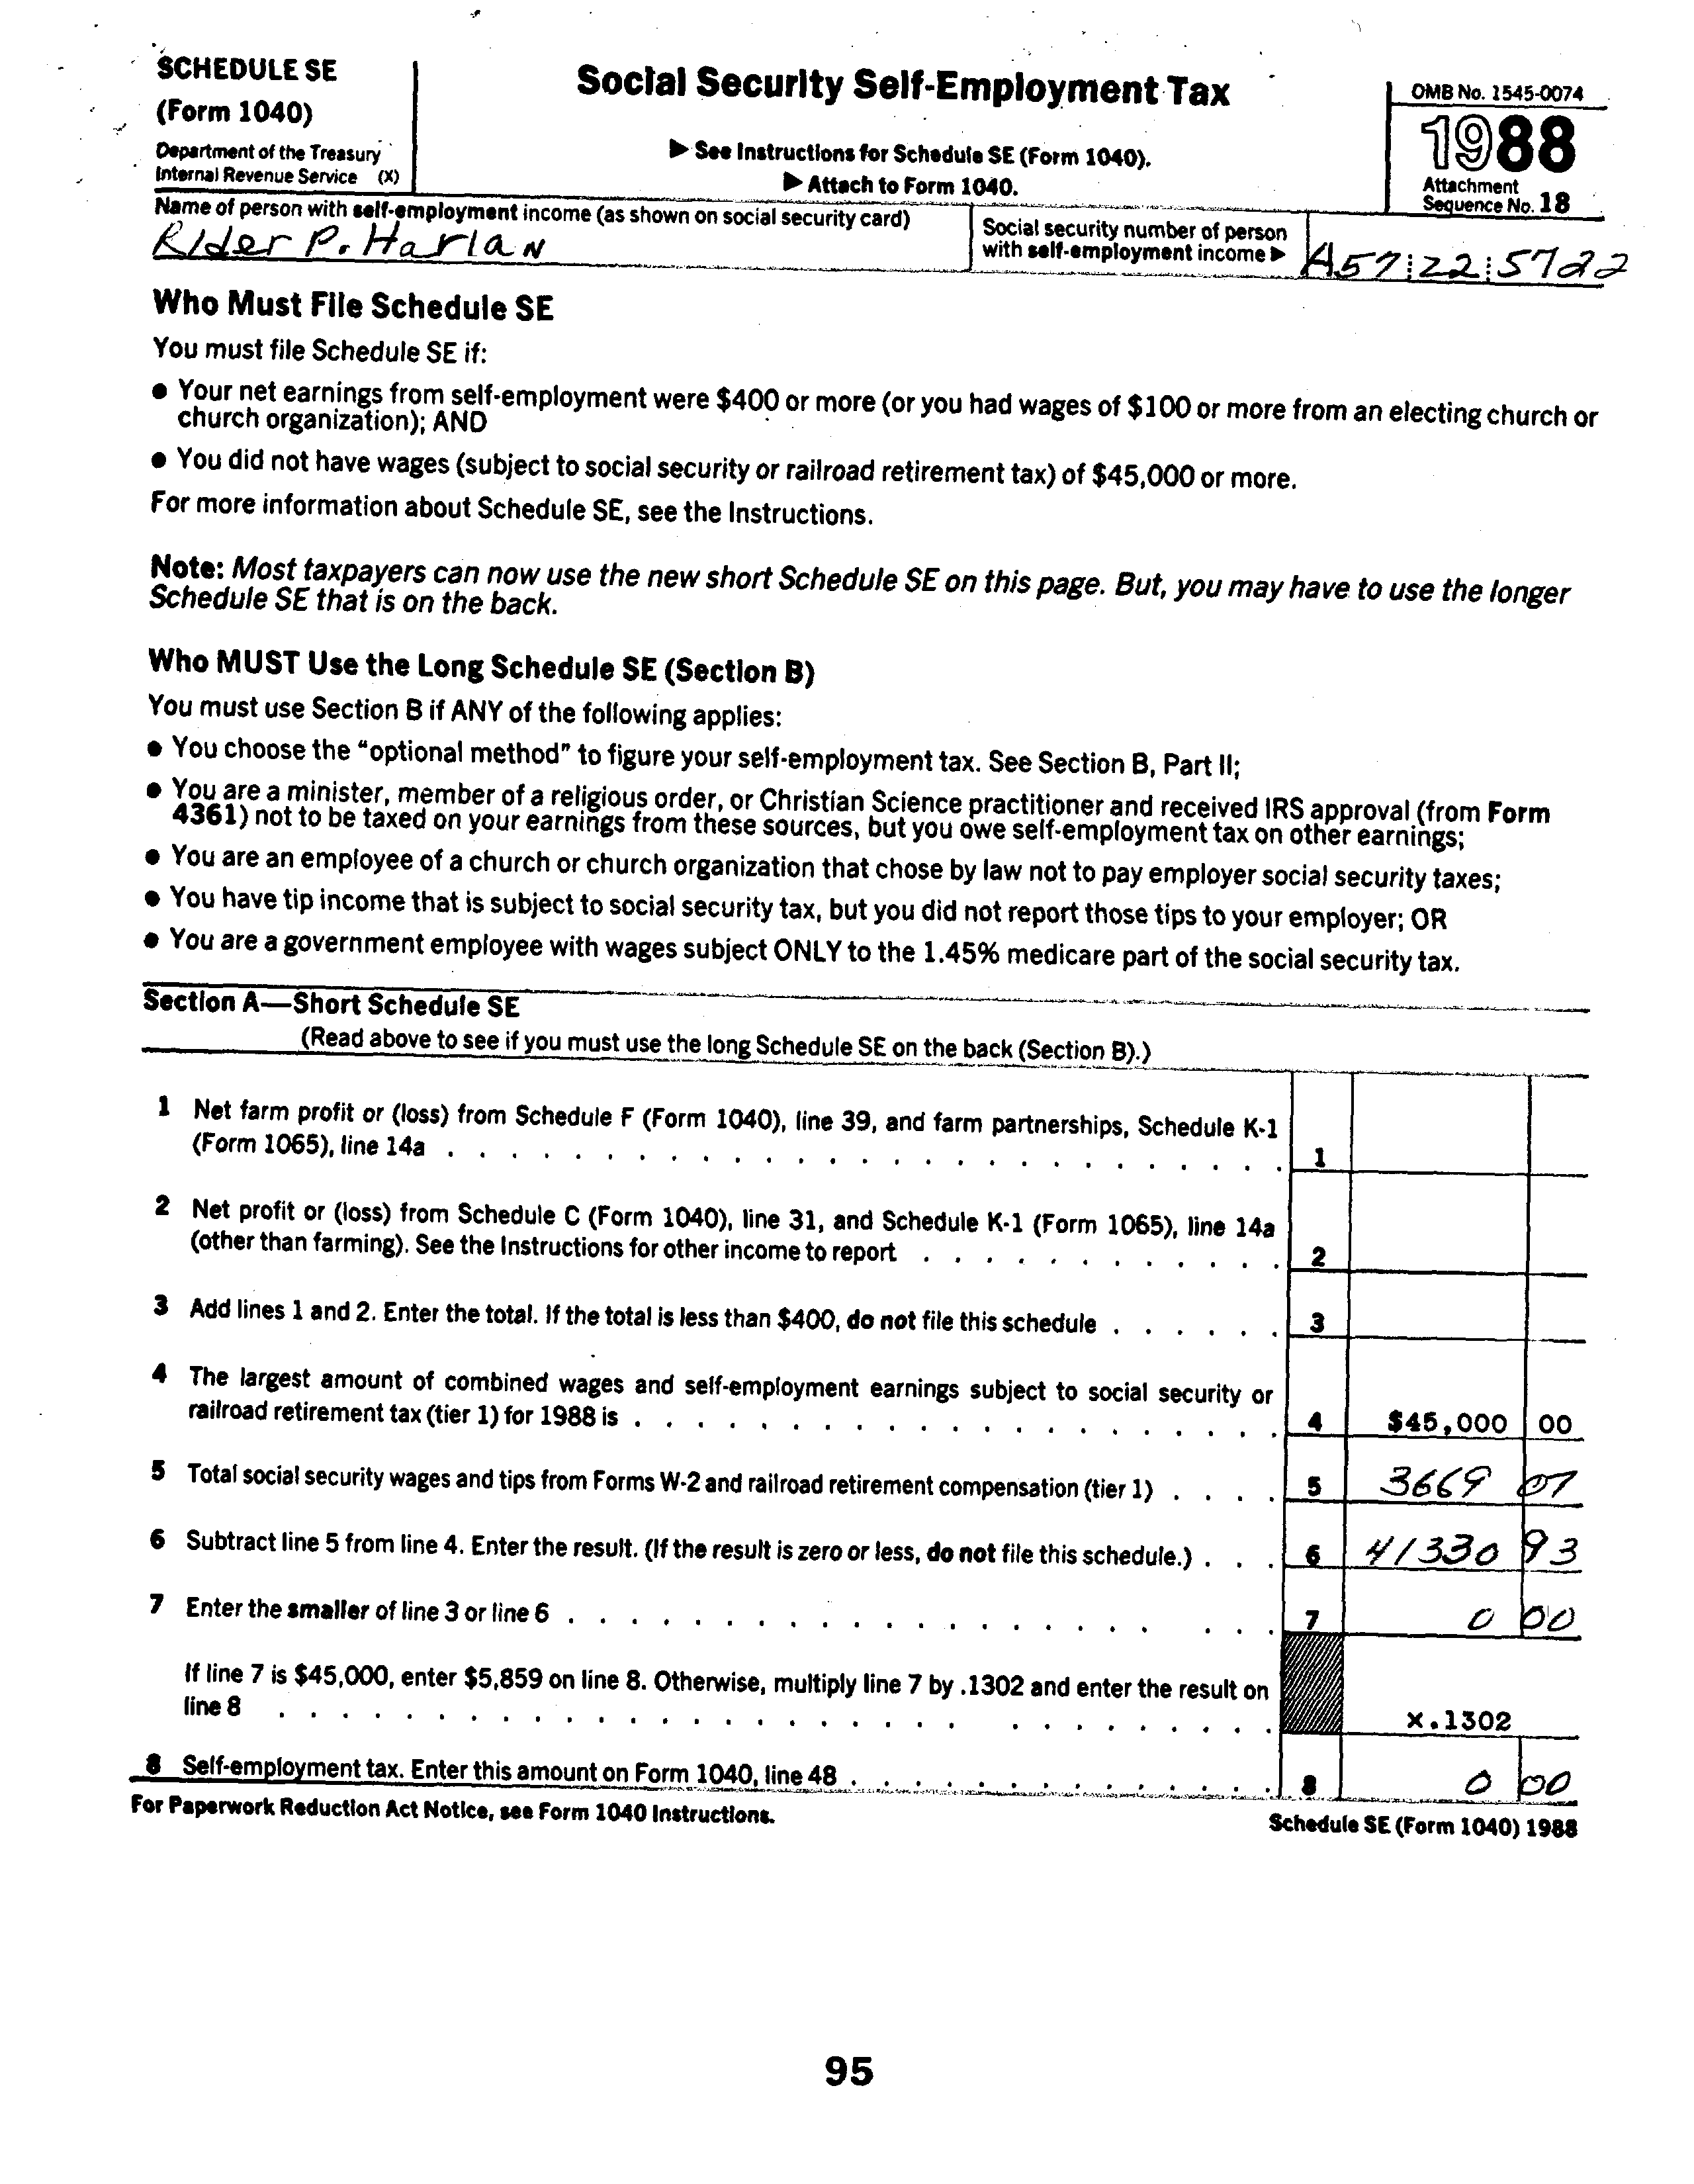 SCHEDULE SE
(Form 1040)
Department of the Treasury
Internal Revenue Service (X)
Social Security Self-Employment Tax
▶ See Instructions for Schedule SE (Form 1040).
▶ Attach to Form 1040.
OMB No. 1545-0074
1988
Attachment
Sequence No. 18
Name of person with self-employment income (as shown on social security card)
Rider P. Harlan
Social security number of person
with self-employment income ▶
A57 22 5722
Who Must File Schedule SE
You must file Schedule SE if:
● Your net earnings from self-employment were $400 or more (or you had wages of $100 or more from an electing church or
church organization); AND
● You did not have wages (subject to social security or railroad retirement tax) of $45,000 or more.
For more information about Schedule SE, see the Instructions.
Note: Most taxpayers can now use the new short Schedule SE on this page. But, you may have to use the longer
Schedule SE that is on the back.
Who MUST Use the Long Schedule SE (Section B)
You must use Section B if ANY of the following applies:
● You choose the “optional method” to figure your self-employment tax. See Section B, Part II;
● You are a minister, member of a religious order, or Christian Science practitioner and received IRS approval (from Form
4361) not to be taxed on your earnings from these sources, but you owe self-employment tax on other earnings;
● You are an employee of a church or church organization that chose by law not to pay employer social security taxes;
● You have tip income that is subject to social security tax, but you did not report those tips to your employer; OR
● You are a government employee with wages subject ONLY to the 1.45% medicare part of the social security tax.
Section A—Short Schedule SE
(Read above to see if you must use the long Schedule SE on the back (Section B).)
1 Net farm profit or (loss) from Schedule F (Form 1040), line 39, and farm partnerships, Schedule K-1
(Form 1065), line 14a . . . . . . . . . . . . . . . . . . . . . . . . . . 1
2 Net profit or (loss) from Schedule C (Form 1040), line 31, and Schedule K-1 (Form 1065), line 14a
(other than farming). See the Instructions for other income to report . . . . . . . . . . . . 2
3 Add lines 1 and 2. Enter the total. If the total is less than $400, do not file this schedule . . . . . . 3
4 The largest amount of combined wages and self-employment earnings subject to social security or
railroad retirement tax (tier 1) for 1988 is . . . . . . . . . . . . . . . . . . . . . 4 $45,000 00
5 Total social security wages and tips from Forms W-2 and railroad retirement compensation (tier 1) . . . . 5 3669 07
6 Subtract line 5 from line 4. Enter the result. (If the result is zero or less, do not file this schedule.) . . . 6 41330 93
7 Enter the smaller of line 3 or line 6 . . . . . . . . . . . . . . . . . . . . . . 7 0 00
If line 7 is $45,000, enter $5,859 on line 8. Otherwise, multiply line 7 by .1302 and enter the result on
line 8 . . . . . . . . . . . . . . . . . . . . . . . . . . . . . . x.1302
8 Self-employment tax. Enter this amount on Form 1040, line 48 . . . . . . . . . . . . . . 8 0 00
For Paperwork Reduction Act Notice, see Form 1040 Instructions.
Schedule SE (Form 1040) 1988
95